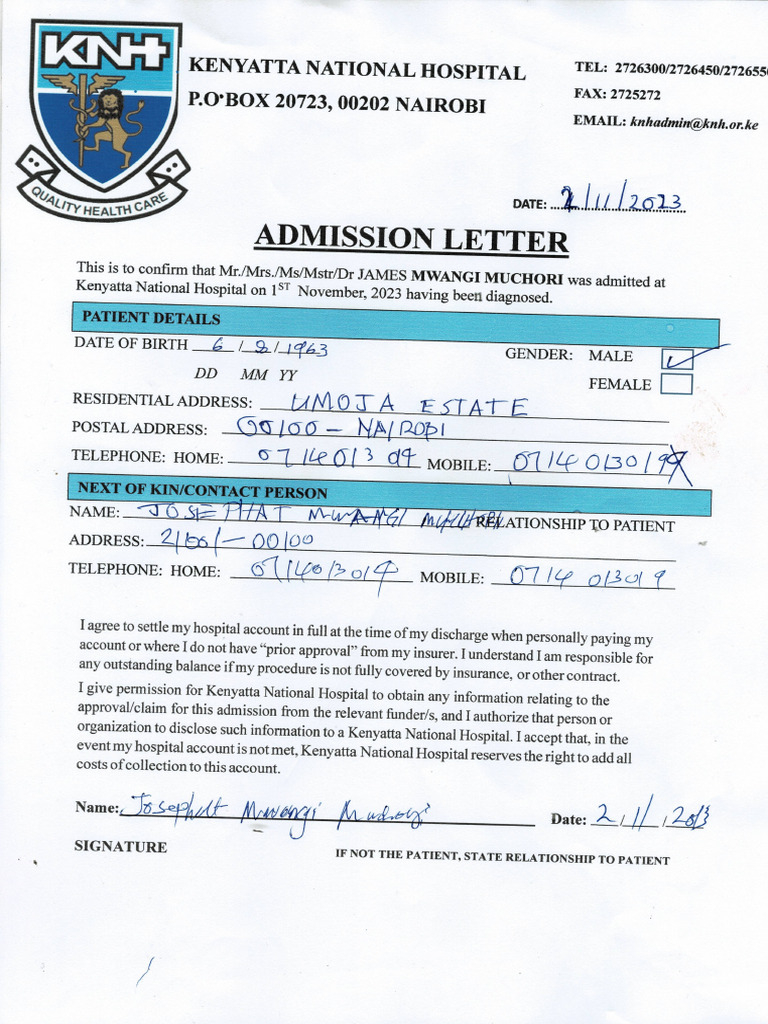 KNH
QUALITY HEALTH CARE
KENYATTA NATIONAL HOSPITAL
P.O BOX 20723, 00202 NAIROBI
TEL: 2726300/2726450/2726550
FAX: 2725272
EMAIL: knhadmin@knh.or.ke
DATE: 2/11/2023
ADMISSION LETTER
This is to confirm that Mr./Mrs./Ms/Mstr/Dr JAMES MWANGI MUCHORI was admitted at
Kenyatta National Hospital on 1ST November, 2023 having been diagnosed.
PATIENT DETAILS
DATE OF BIRTH 6/8/1963
GENDER: MALE
DD MM YY
FEMALE
RESIDENTIAL ADDRESS: UMOJA ESTATE
POSTAL ADDRESS: 00100 - NAIROBI
TELEPHONE: HOME: 0714013019 MOBILE: 0714013019
NEXT OF KIN/CONTACT PERSON
NAME: JOSEPHAT MWANGI MUCHORI RELATIONSHIP TO PATIENT
ADDRESS: - 00100
TELEPHONE: HOME: 0714013019 MOBILE: 0714 013019
I agree to settle my hospital account in full at the time of my discharge when personally paying my
account or where I do not have “prior approval” from my insurer. I understand I am responsible for
any outstanding balance if my procedure is not fully covered by insurance, or other contract.
I give permission for Kenyatta National Hospital to obtain any information relating to the
approval/claim for this admission from the relevant funder/s, and I authorize that person or
organization to disclose such information to a Kenyatta National Hospital. I accept that, in the
event my hospital account is not met, Kenyatta National Hospital reserves the right to add all
costs of collection to this account.
Name: Josephat Mwangi Muchori Date: 2/11/2023
SIGNATURE
IF NOT THE PATIENT, STATE RELATIONSHIP TO PATIENT